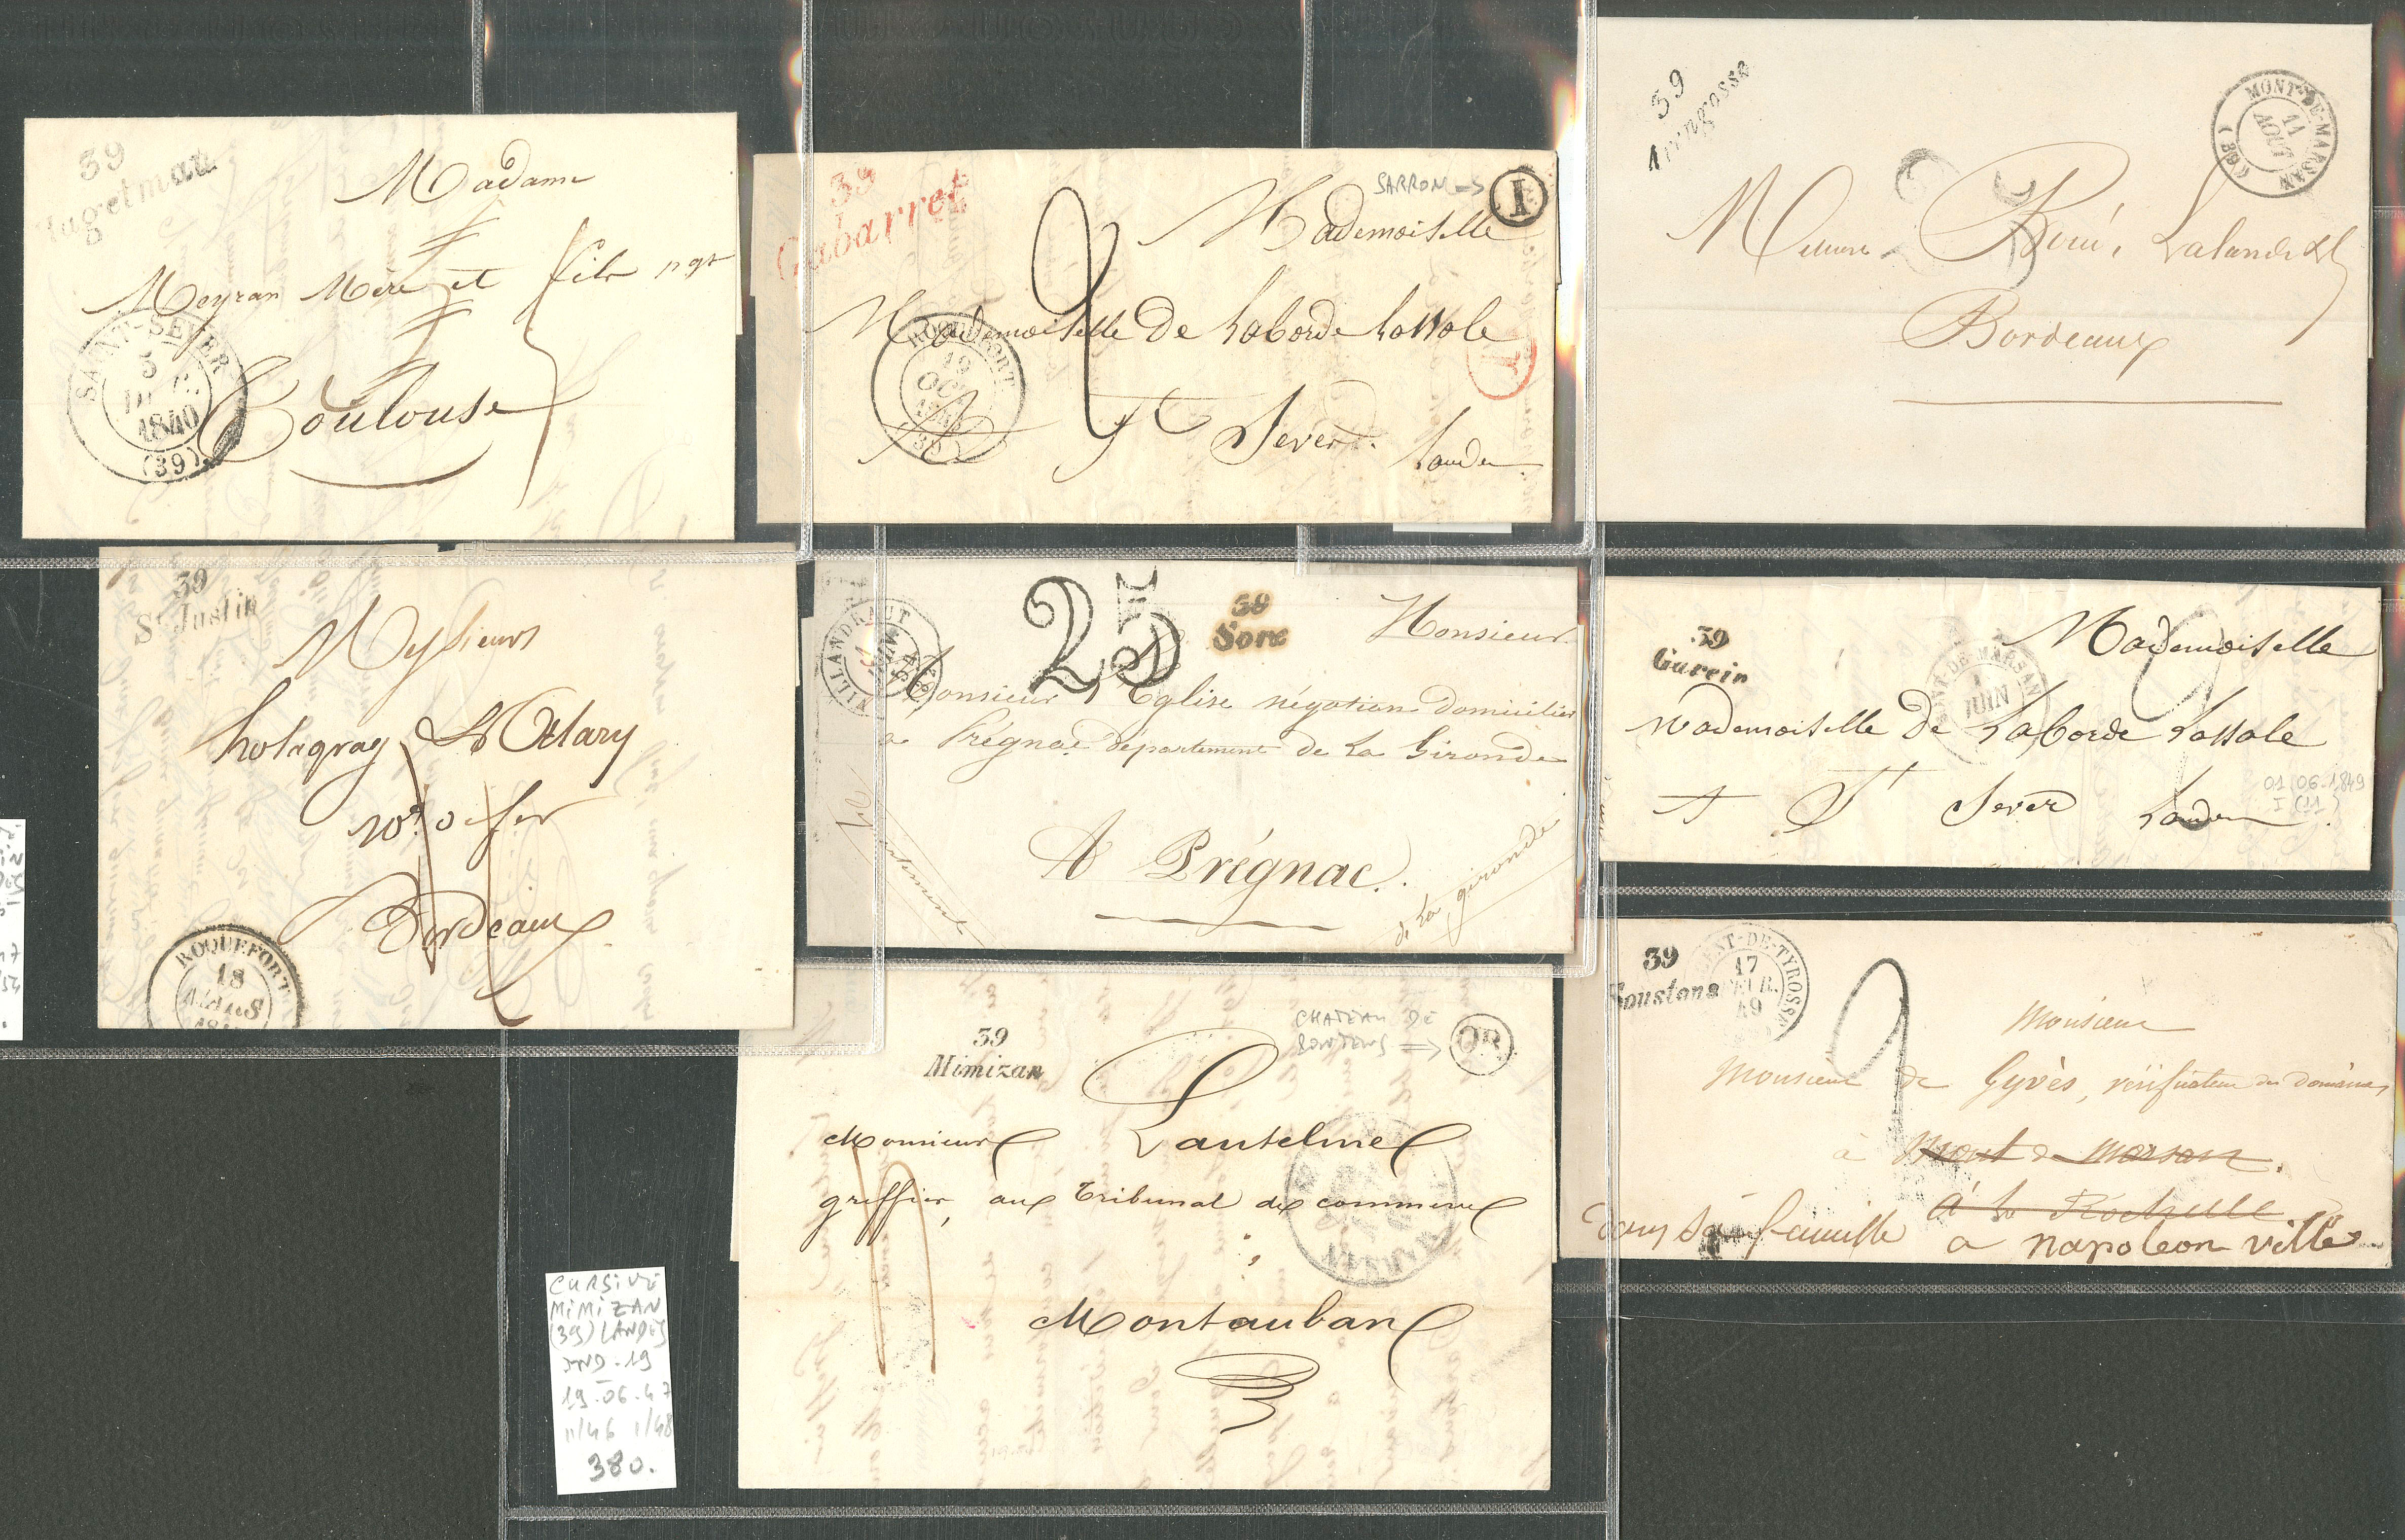 39
Hagetmau
Madame
Meyran Mère et fils ngt
Toulouse
SAINT-SEVER
5
1840
(39)
39
Gabarret
SARRON ->
I
2
Mademoiselle
Mademoiselle De Laborde Lassale
ROQUEFORT
19
OCT
A St Sever.
Landes
39
Aringosse
MONT-DE-MARSAN
11
AOUT
(39)
Bordeaux
39
St Justin
Messieurs
Bordeaux
ROQUEFORT
18
MARS
VILLANDRAUT
25
39
Sore
Monsieur
Monsieur Eglise négotiant domicilier
a Prégnac département de La Gironde
A Prégnac.
de La gironde
39
Garein
MONT-DE-MARSAN
1
JUIN
Mademoiselle
Mademoiselle De Laborde Lassale
A St Sever Landes
01.06.1849
I (11)
39
Soustons
ST-VINCENT-DE-TYROSSE
17
49
2
Monsieur
Monsieur de Gyvès, vérificateur des domaines
à Mont de Marsan.
à la Rochelle
dans sa famille a napoleon ville
39
Mimizan
CHATEAU DE
OR
Monsieur Lantelme
greffier, au Tribunal de commerce
Montauban
CURSIVE
MIMIZAN
(39) LANDES
IND-19
19.06.47
11/46 1/48
380.